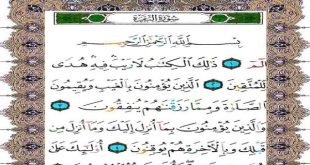 سُورَةُ البَقَرَةِ
بِسْمِ ٱللَّهِ ٱلرَّحْمَٰنِ ٱلرَّحِيمِ
الٓمٓ ١ ذَٰلِكَ ٱلْكِتَٰبُ لَا رَيْبَ فِيهِ هُدًى
لِّلْمُتَّقِينَ ٢ ٱلَّذِينَ يُؤْمِنُونَ بِٱلْغَيْبِ وَيُقِيمُونَ
ٱلصَّلَوٰةَ وَمِمَّا رَزَقْنَٰهُمْ يُنفِقُونَ ٣
وَٱلَّذِينَ يُؤْمِنُونَ بِمَآ أُنزِلَ إِلَيْكَ وَمَآ أُنزِلَ مِن
قَبْلِكَ وَبِٱلْءَاخِرَةِ هُمْ يُوقِنُونَ ٤ أُو۟لَٰٓئِكَ عَلَىٰ